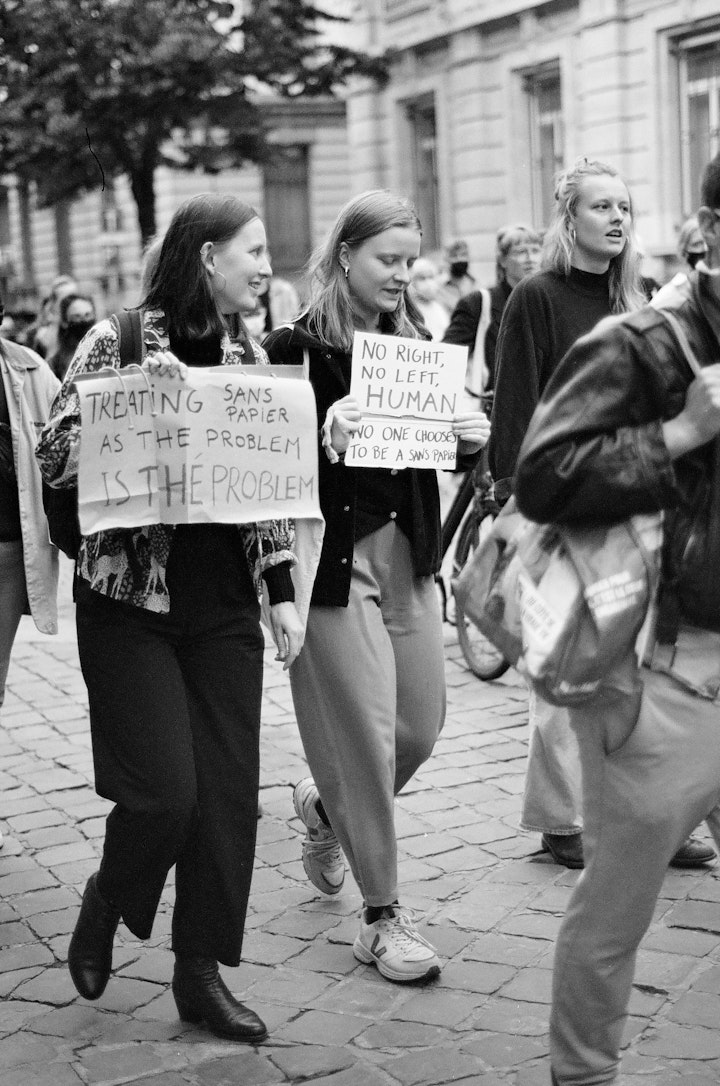 TREATING SANS
PAPIER
AS THE PROBLEM
IS THE PROBLEM
NO RIGHT,
NO LEFT,
HUMAN
NO ONE CHOOSES
TO BE A SANS PAPIER